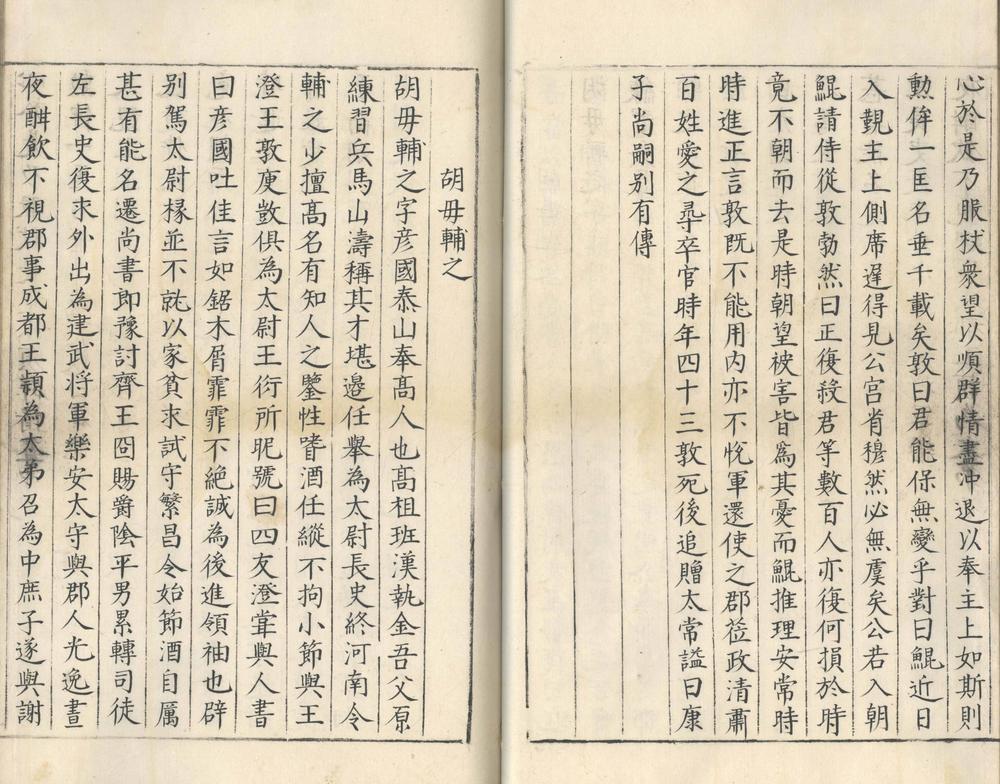 心於是乃服杖衆望以順群情盡沖退以奉主上如斯則
勲侔一匡名垂千載矣敦曰君能保無變乎對曰鯤近日
入覲主上側席遲得見公宫省穆然必無虞矣公若入朝
鯤請侍從敦勃然曰正復殺君等數百人亦復何損於時
竟不朝而去是時朝望被害皆為其憂而鯤推理安常時
時進正言敦既不能用内亦不悅軍還使之郡莅政清肅
百姓愛之尋卒官時年四十三敦死後追贈太常謚曰康
子尚嗣别有傳
胡毋輔之
胡毋輔之字彦國泰山奉髙人也髙祖班漢執金吾父原
練習兵馬山濤稱其才堪邉任舉為太尉長史終河南令
輔之少擅髙名有知人之鑒性嗜酒任縱不拘小節與王
澄王敦庾敳俱為太尉王衍所昵號曰四友澄甞與人書
曰彦國吐佳言如鋸木屑霏霏不絶誠為後進領袖也辟
别駕太尉掾並不就以家貧求試守繁昌令始節酒自厲
甚有能名遷尚書郎豫討齊王冏賜爵隂平男累轉司徒
左長史復求外出為建武将軍樂安太守與郡人光逸晝
夜酣飲不視郡事成都王頴為太弟召為中庶子遂與謝